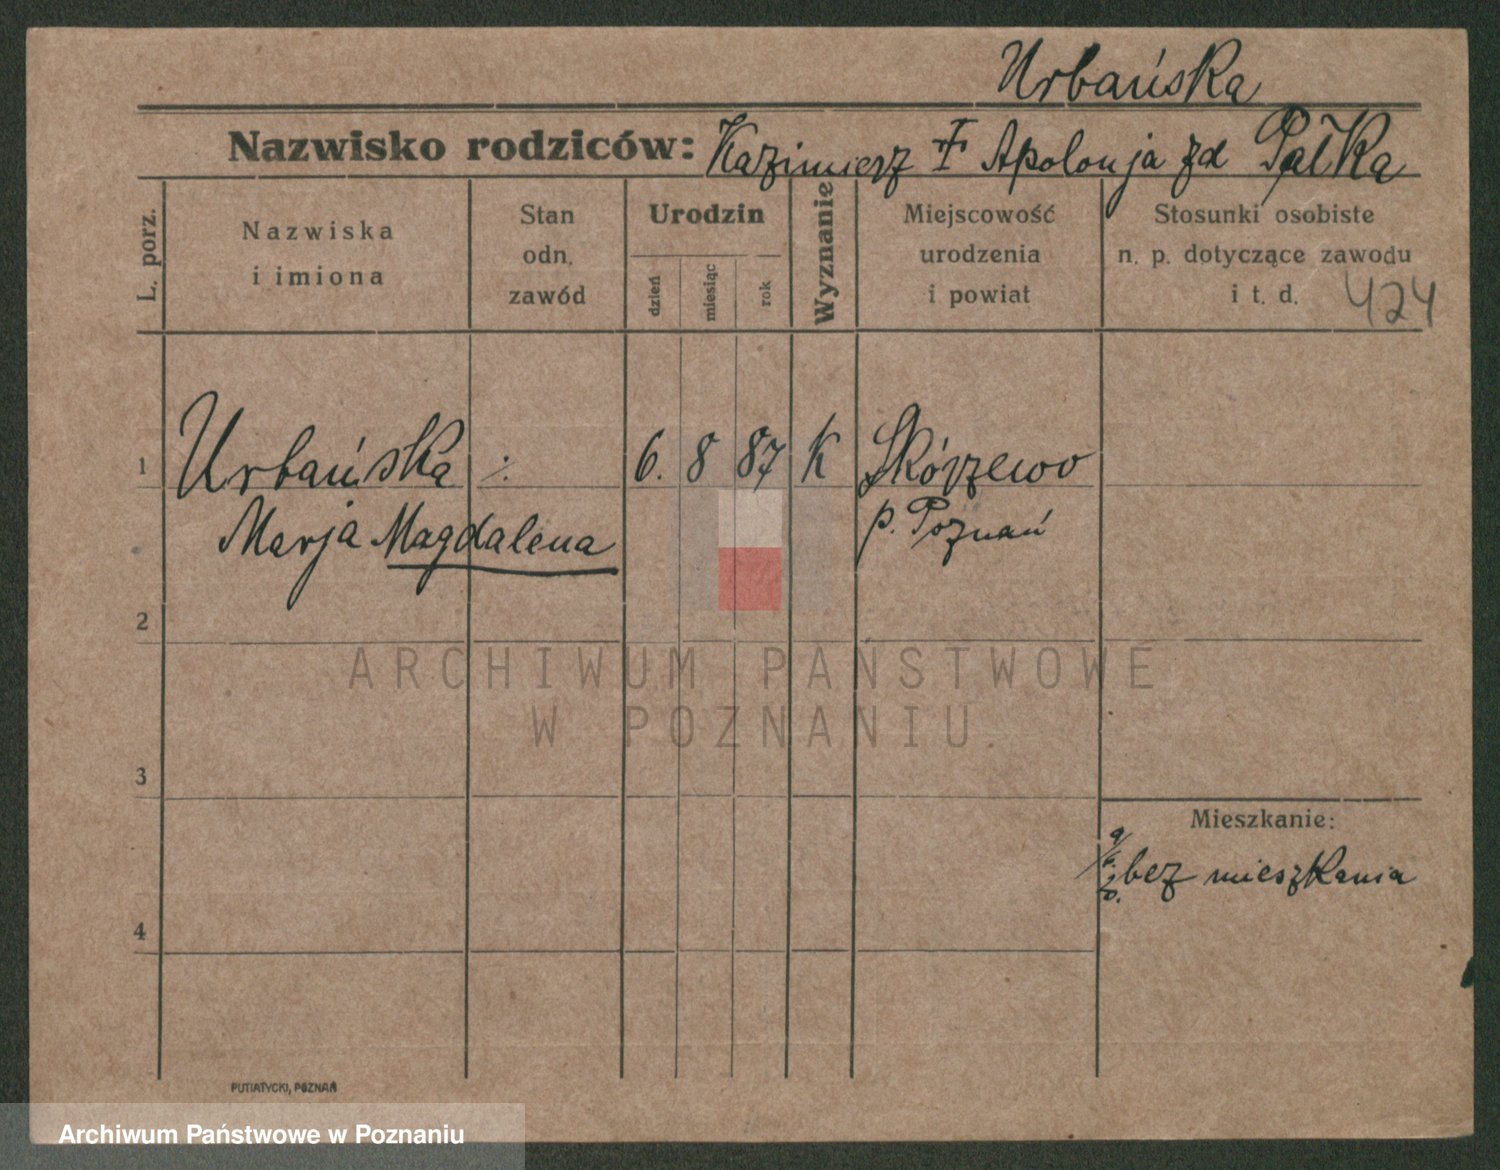 Urbańska
Nazwisko rodziców: Kazimierz Apolonja zd Pałka
L. porz.
Nazwiska
i imiona
Stan
odn.
zawód
Urodzin
dzień
miesiąc
rok
Wyznanie
Miejscowość
urodzenia
i powiat
Stosunki osobiste
n. p. dotyczące zawodu
i t. d.
424
1 Urbańska ·/. 6. 8 87 K Skórzewo
Marja Magdalena p. Poznań
2
ARCHIWUM PAŃSTWOWE
W POZNANIU
3
Mieszkanie:
bez mieszkania
4
PUTIATYCKI, POZNAŃ
Archiwum Państwowe w Poznaniu